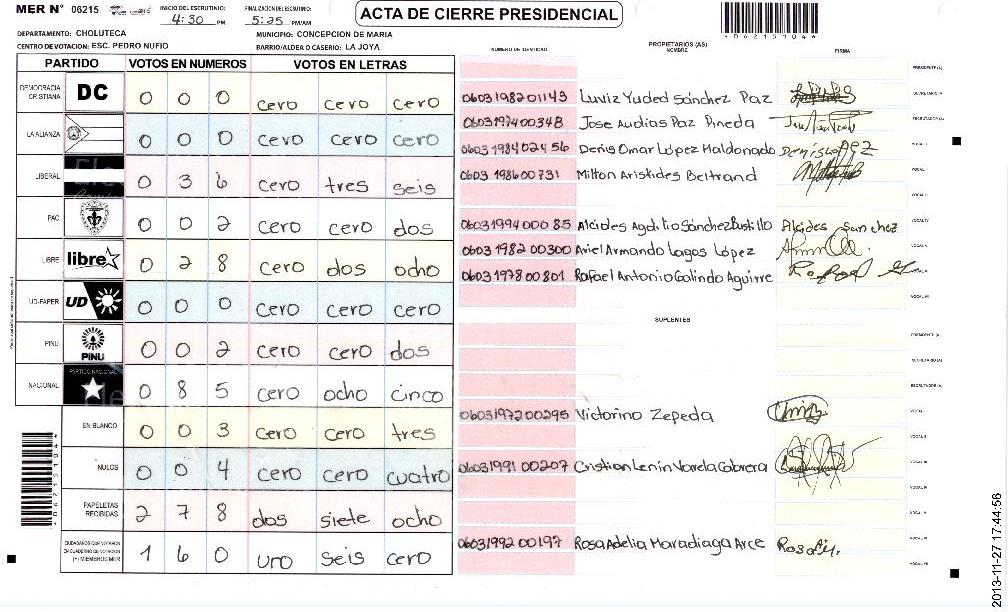 MER N° 06215 INICIO DEL ESCRUTINIO: 4:30 PM FINALIZACION DEL ESCRUTINIO: 5:25 PM/AM
ACTA DE CIERRE PRESIDENCIAL
*06215104*
DEPARTAMENTO: CHOLUTECA MUNICIPIO: CONCEPCION DE MARIA
CENTRO DE VOTACION: ESC. PEDRO NUFIO BARRIO/ALDEA O CASERIO: LA JOYA
NUMERO DE IDENTIDAD PROPIETARIOS (AS) NOMBRE FIRMA
PARTIDO VOTOS EN NUMEROS VOTOS EN LETRAS
DEMOCRACIA CRISTIANA DC 0 0 0 cero cero cero
LA ALIANZA 0 0 0 cero cero cero
LIBERAL 0 3 6 cero tres seis
PAC 0 0 2 cero cero dos
LIBRE libre 0 2 8 cero dos ocho
UD-FAPER UD 0 0 0 cero cero cero
PINU PINU 0 0 2 cero cero dos
NACIONAL PARTIDO NACIONAL 0 8 5 cero ocho cinco
EN BLANCO 0 0 3 cero cero tres
NULOS 0 0 4 cero cero cuatro
PAPELETAS RECIBIDAS 2 7 8 dos siete ocho
CIUDADANOS QUE VOTARON EN CUADERNO DE VOTACION (+) MIEMBROS MER 1 6 0 uno seis cero
PRESIDENTE (A)
0603198201143 Luviz Yuded Sánchez Paz SECRETARIO (A)
0603197400348 Jose Audias Paz Pineda ESCRUTADOR (A)
0603198402456 Denis Omar López Maldonado Denis Lopez VOCAL I
0603198600731 Milton Aristides Beltrand VOCAL II
VOCAL III
0603199400085 Alcides Agditio Sánchez Bustillo Alcides Sanchez VOCAL IV
0603198200300 Ariel Armando Lagos López VOCAL V
0603197800801 Rafael Antonio Galindo Aguirre Rafael G VOCAL VI
VOCAL VII
SUPLENTES
PRESIDENTE (A)
SECRETARIO (A)
ESCRUTADOR (A)
0603197200295 Victorino Zepeda VOCAL I
VOCAL II
0603199100207 Cristian Lenin Varela Cabrera VOCAL III
VOCAL IV
VOCAL V
0603199200197 Rosa Adelia Maradiaga Arce Rosa M. VOCAL VI
VOCAL VII
*06215104*
2013-11-27 17:44:56